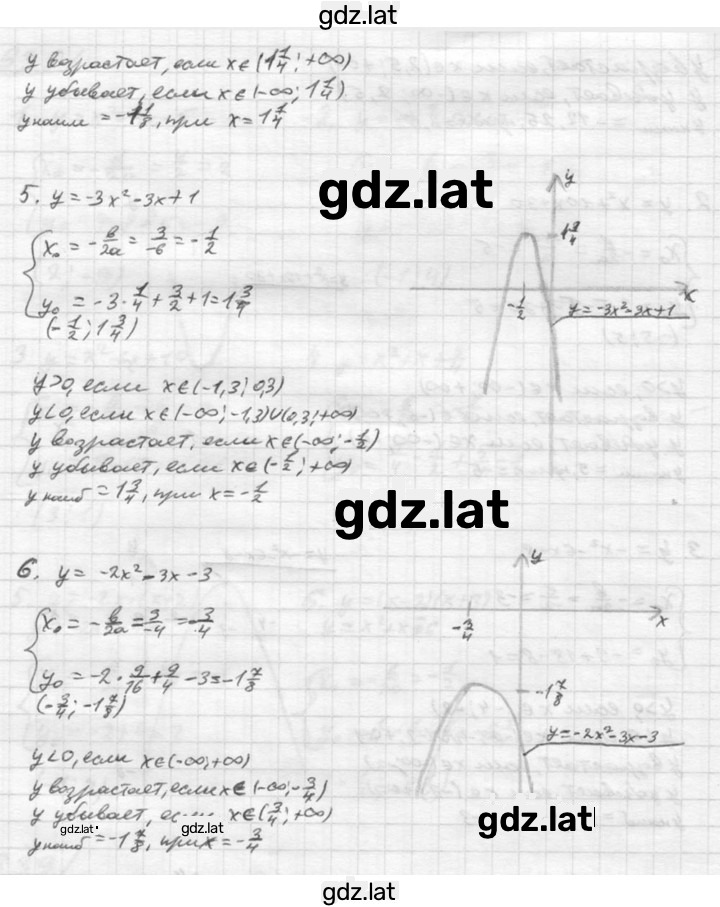 gdz.lat
y возрастает, если x∈(1 1/4; +∞)
y убывает, если x∈(-∞; 1 1/4)
y наим = -1 1/8, при x = 1 1/4
gdz.lat
5. y = -3x² - 3x + 1
x₀ = -в/2a = 3/-6 = -1/2
y₀ = -3·1/4 + 3/2 + 1 = 1 3/4
(-1/2; 1 3/4)
y
1 3/4
x
-1/2
y = -3x² - 3x + 1
y>0, если x∈(-1,3; 0,3)
y<0, если x∈(-∞; -1,3)∪(0,3; +∞)
y возрастает, если x∈(-∞; -1/2)
y убывает, если x∈(-1/2; +∞)
y наиб = 1 3/4, при x = -1/2
gdz.lat
6. y = -2x² - 3x - 3
x₀ = -в/2a = 3/-4 = -3/4
y₀ = -2·9/16 + 9/4 - 3 = -1 7/8
(-3/4; -1 7/8)
y
x
-3/4
-1 7/8
y = -2x² - 3x - 3
y<0, если x∈(-∞; +∞)
y возрастает, если x∈(-∞; -3/4)
y убывает, x∈(3/4; +∞)
gdz.lat
gdz.lat
gdz.lat
y наиб = -1 7/8, при x = -3/4
gdz.lat